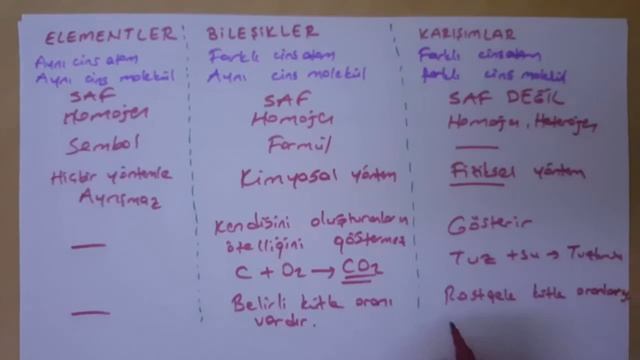 ELEMENTLER
Aynı cins atom
Aynı cins molekül
SAF
Homojen
Sembol
Hiçbir yöntemle
Ayrışmaz
BİLEŞİKLER
Farklı cins atom
Aynı cins molekül
SAF
Homojen
Formül
Kimyasal yöntem
Kendisini oluşturanların
özelliğini göstermez
C + O2 → CO2
Belirli kütle oranı
vardır.
KARIŞIMLAR
Farklı cins atom
farklı cins molekül
SAF DEĞİL
Homojen, Heterojen
Fiziksel yöntem
Gösterir
Tuz + su → Tuzlusu
Rastgele kütle